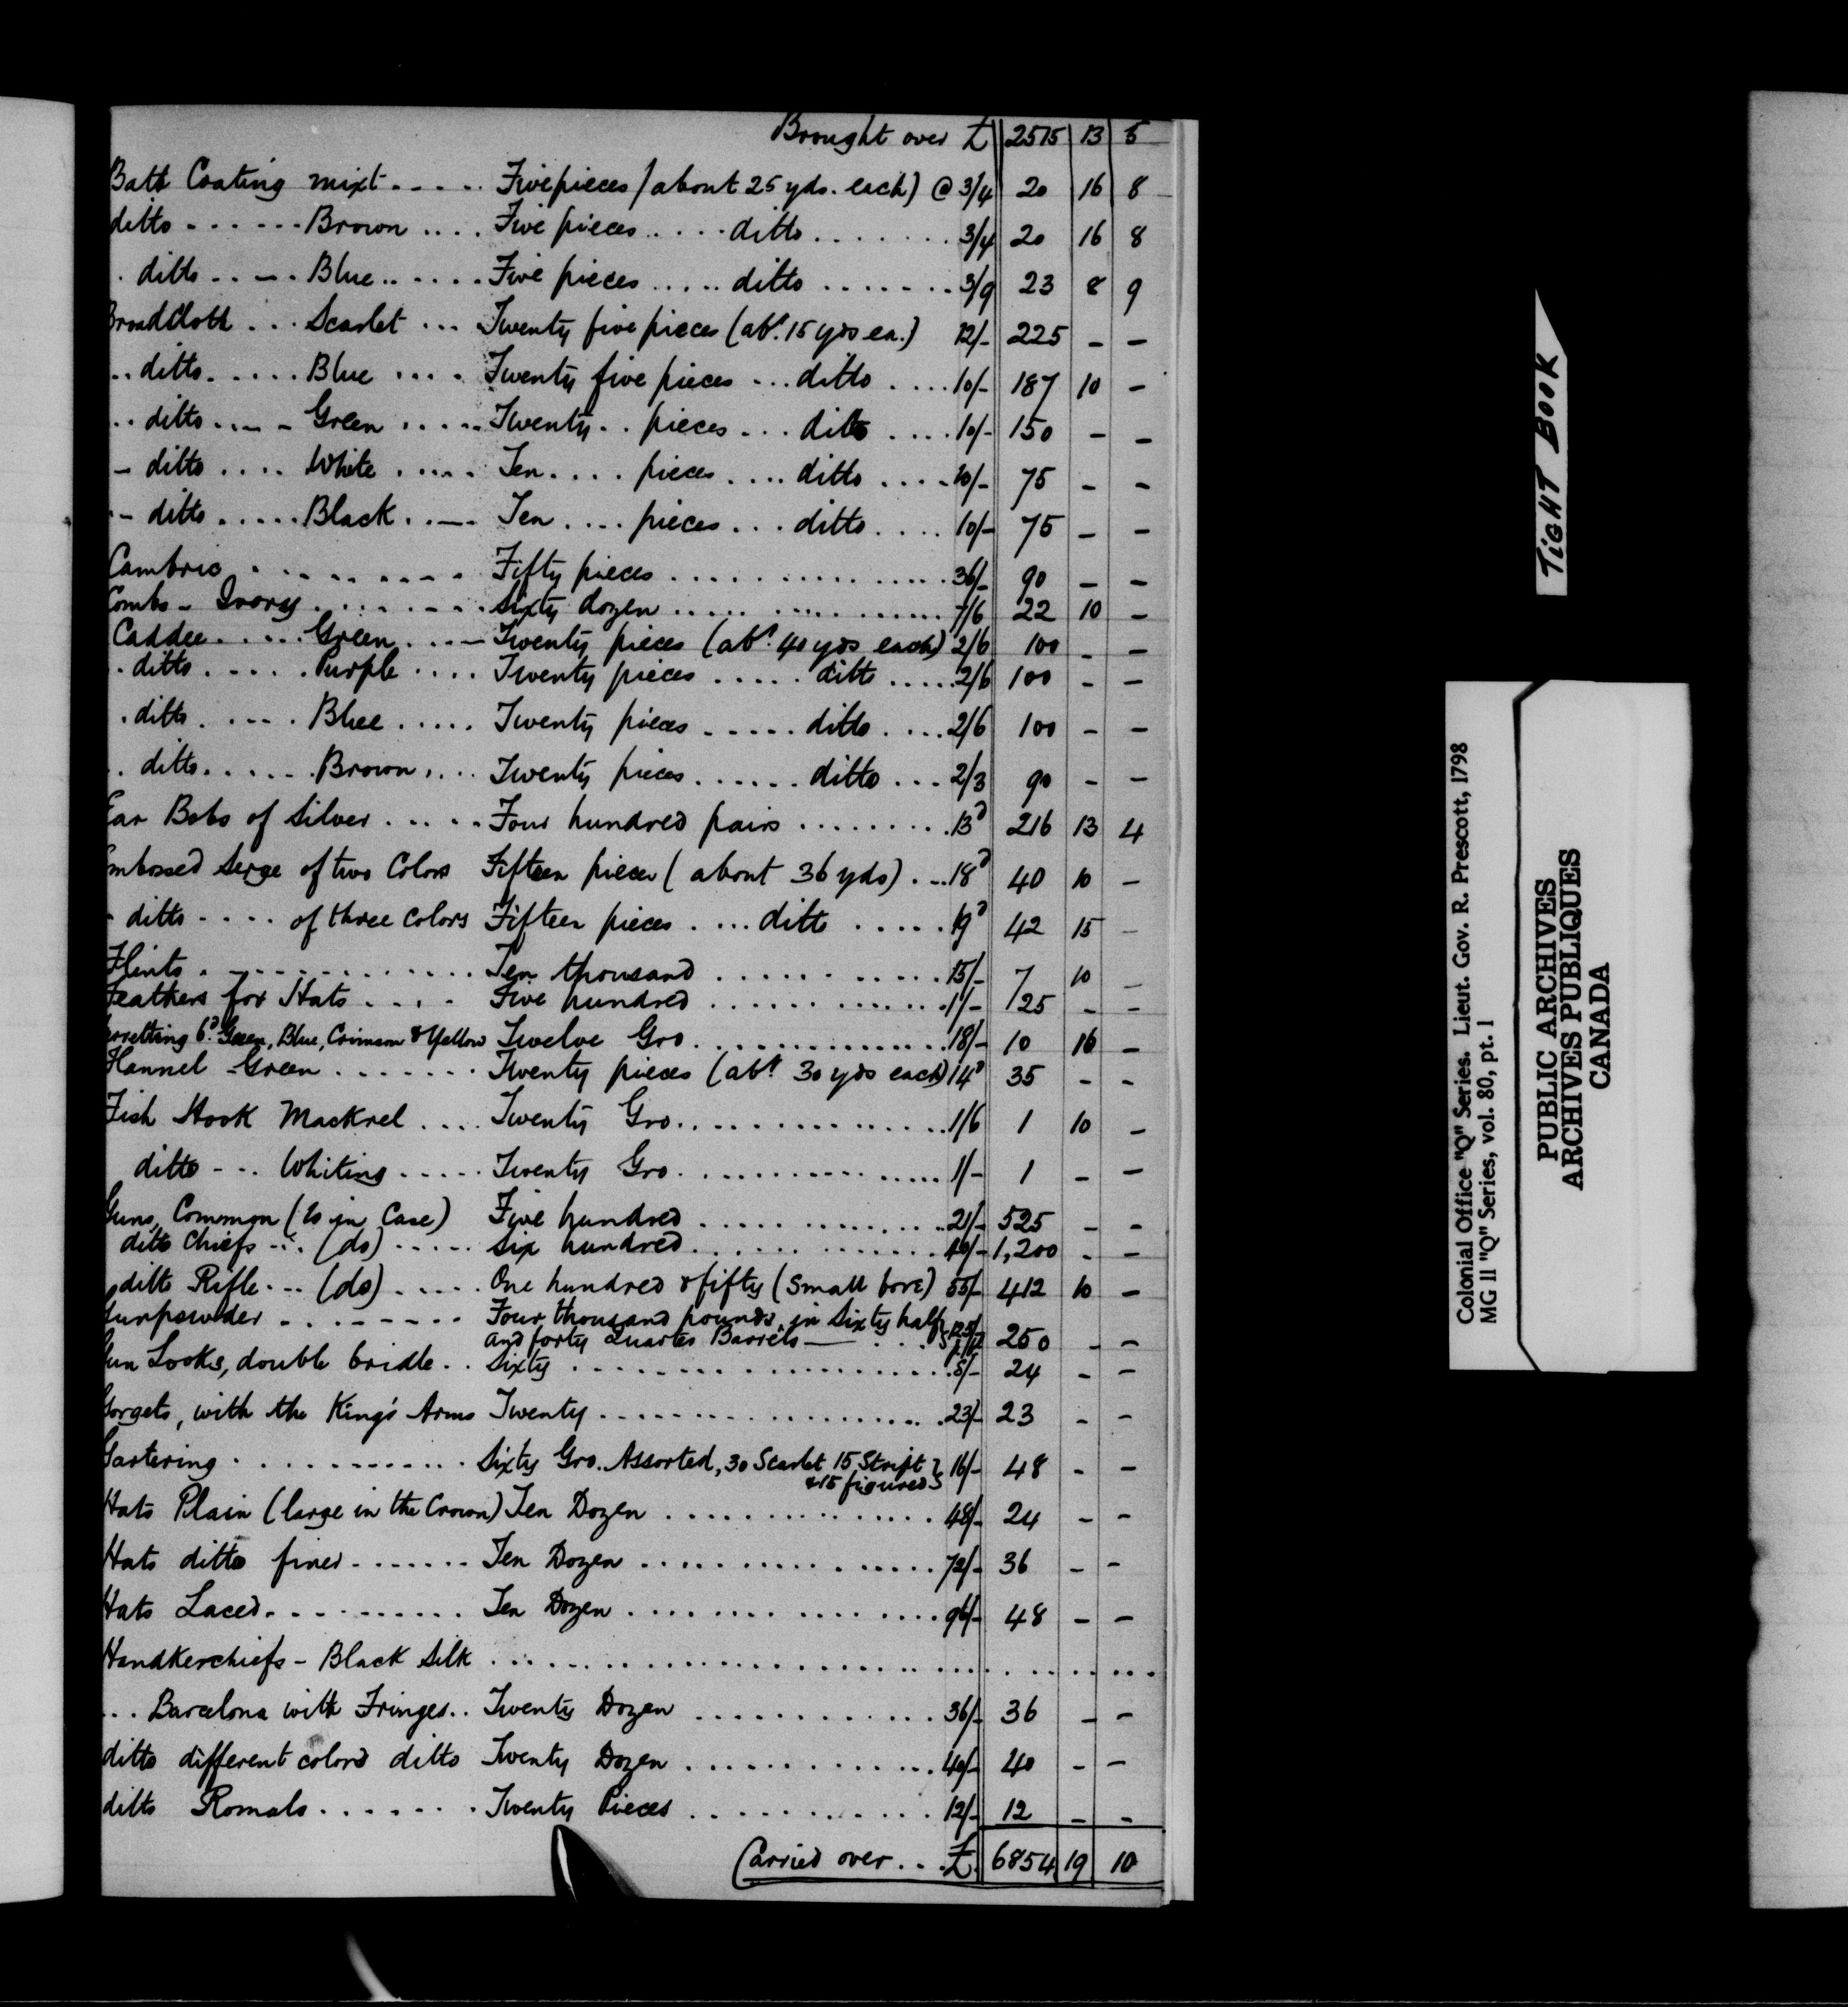 Brought over £ 2515 13 5
Bath Coating mixt ..... Five pieces (about 25 yds. each) @ 3/4 20 16 8
ditto ...... Brown .... Five pieces ..... ditto ....... 3/4 20 16 8
. ditto ..... Blue ...... Five pieces ..... ditto ....... 3/9 23 8 9
Broadcloth ... Scarlet ... Twenty five pieces (abt. 15 yds ea.) 12/- 225 - -
.. ditto ..... Blue .... Twenty five pieces ... ditto .... 10/- 187 10 -
.. ditto .... Green ..... Twenty .. pieces ... ditto .... 10/- 150 - -
- ditto .... White ..... Ten .... pieces .... ditto .... 10/- 75 - -
- ditto ..... Black .... Ten .... pieces ... ditto .... 10/- 75 - -
Cambric ......... Fifty pieces ............... 36/- 90 - -
Combs - Ivory ....... Sixty dozen ............... 7/6 22 10 -
Caddee ..... Green .... Twenty pieces (abt. 40 yds each) 2/6 100 - -
.. ditto ..... Purple .... Twenty pieces ..... ditto ..... 2/6 100 - -
. ditto ..... Blue ..... Twenty pieces ..... ditto .... 2/6 100 - -
. ditto ..... Brown .... Twenty pieces ...... ditto ... 2/3 90 - -
Ear Bobs of Silver ..... Four hundred pairs ......... 13d 216 13 4
Embossed Serge of two Colors Fifteen pieces (about 36 yds) ... 18d 40 10 -
- ditto .... of three colors Fifteen pieces .... ditto ..... 19d 42 15 -
Flints ............ Ten thousand ............ 15/- 7 10 -
Feathers for Hats .... Five hundred ............. 1/- 25 - -
erretting 6d Green, Blue, Crimson & Yellow Twelve Gro ............. 18/- 10 16 -
Flannel - Green ....... Twenty pieces (abt 30 yds each) 14d 35 - -
Fish Hook Mackrel .... Twenty Gro. .............. 1/6 1 10 -
ditto --- Whiting ..... Twenty Gro. ............. 1/- 1 - -
Guns, Common (20 in Case) Five hundred ............. 21/- 525 - -
ditto Chiefs ... (do) ..... Six hundred ............ 40/- 1,200 - -
ditto Rifle ... (do) ..... One hundred & fifty (small bore) 55/- 412 10 -
Gunpowder ......... Four thousand pounds, in Sixty half
and forty Quarter Barrels ... 125/- 250 - -
Gun Locks, double bridle .. Sixty ................. 8/- 24 - -
Gorgets, with the King's Arms Twenty ................. 23/- 23 - -
Gartering ............ Sixty Gro. Assorted, 30 Scarlet 15 Stript
& 15 figured } 16/- 48 - -
Hats Plain (large in the Crown) Ten Dozen .............. 48/- 24 - -
Hats ditto finer ....... Ten Dozen ............... 72/- 36 - -
Hats Laced ........... Ten Dozen ............... 96/- 48 - -
Handkerchiefs - Black Silk ..............................
... Barcelona with Fringes .. Twenty Dozen ............ 36/- 36 - -
ditto different colors ditto Twenty Dozen ............. 40/- 40 - -
ditto Romals ....... Twenty Pieces ............ 12/- 12 - -
Carried over ... £ 6854 19 10
TIGHT BOOK
Colonial Office "Q" Series. Lieut. Gov. R. Prescott, 1798
MG 11 "Q" Series, vol. 80, pt. 1
PUBLIC ARCHIVES
ARCHIVES PUBLIQUES
CANADA